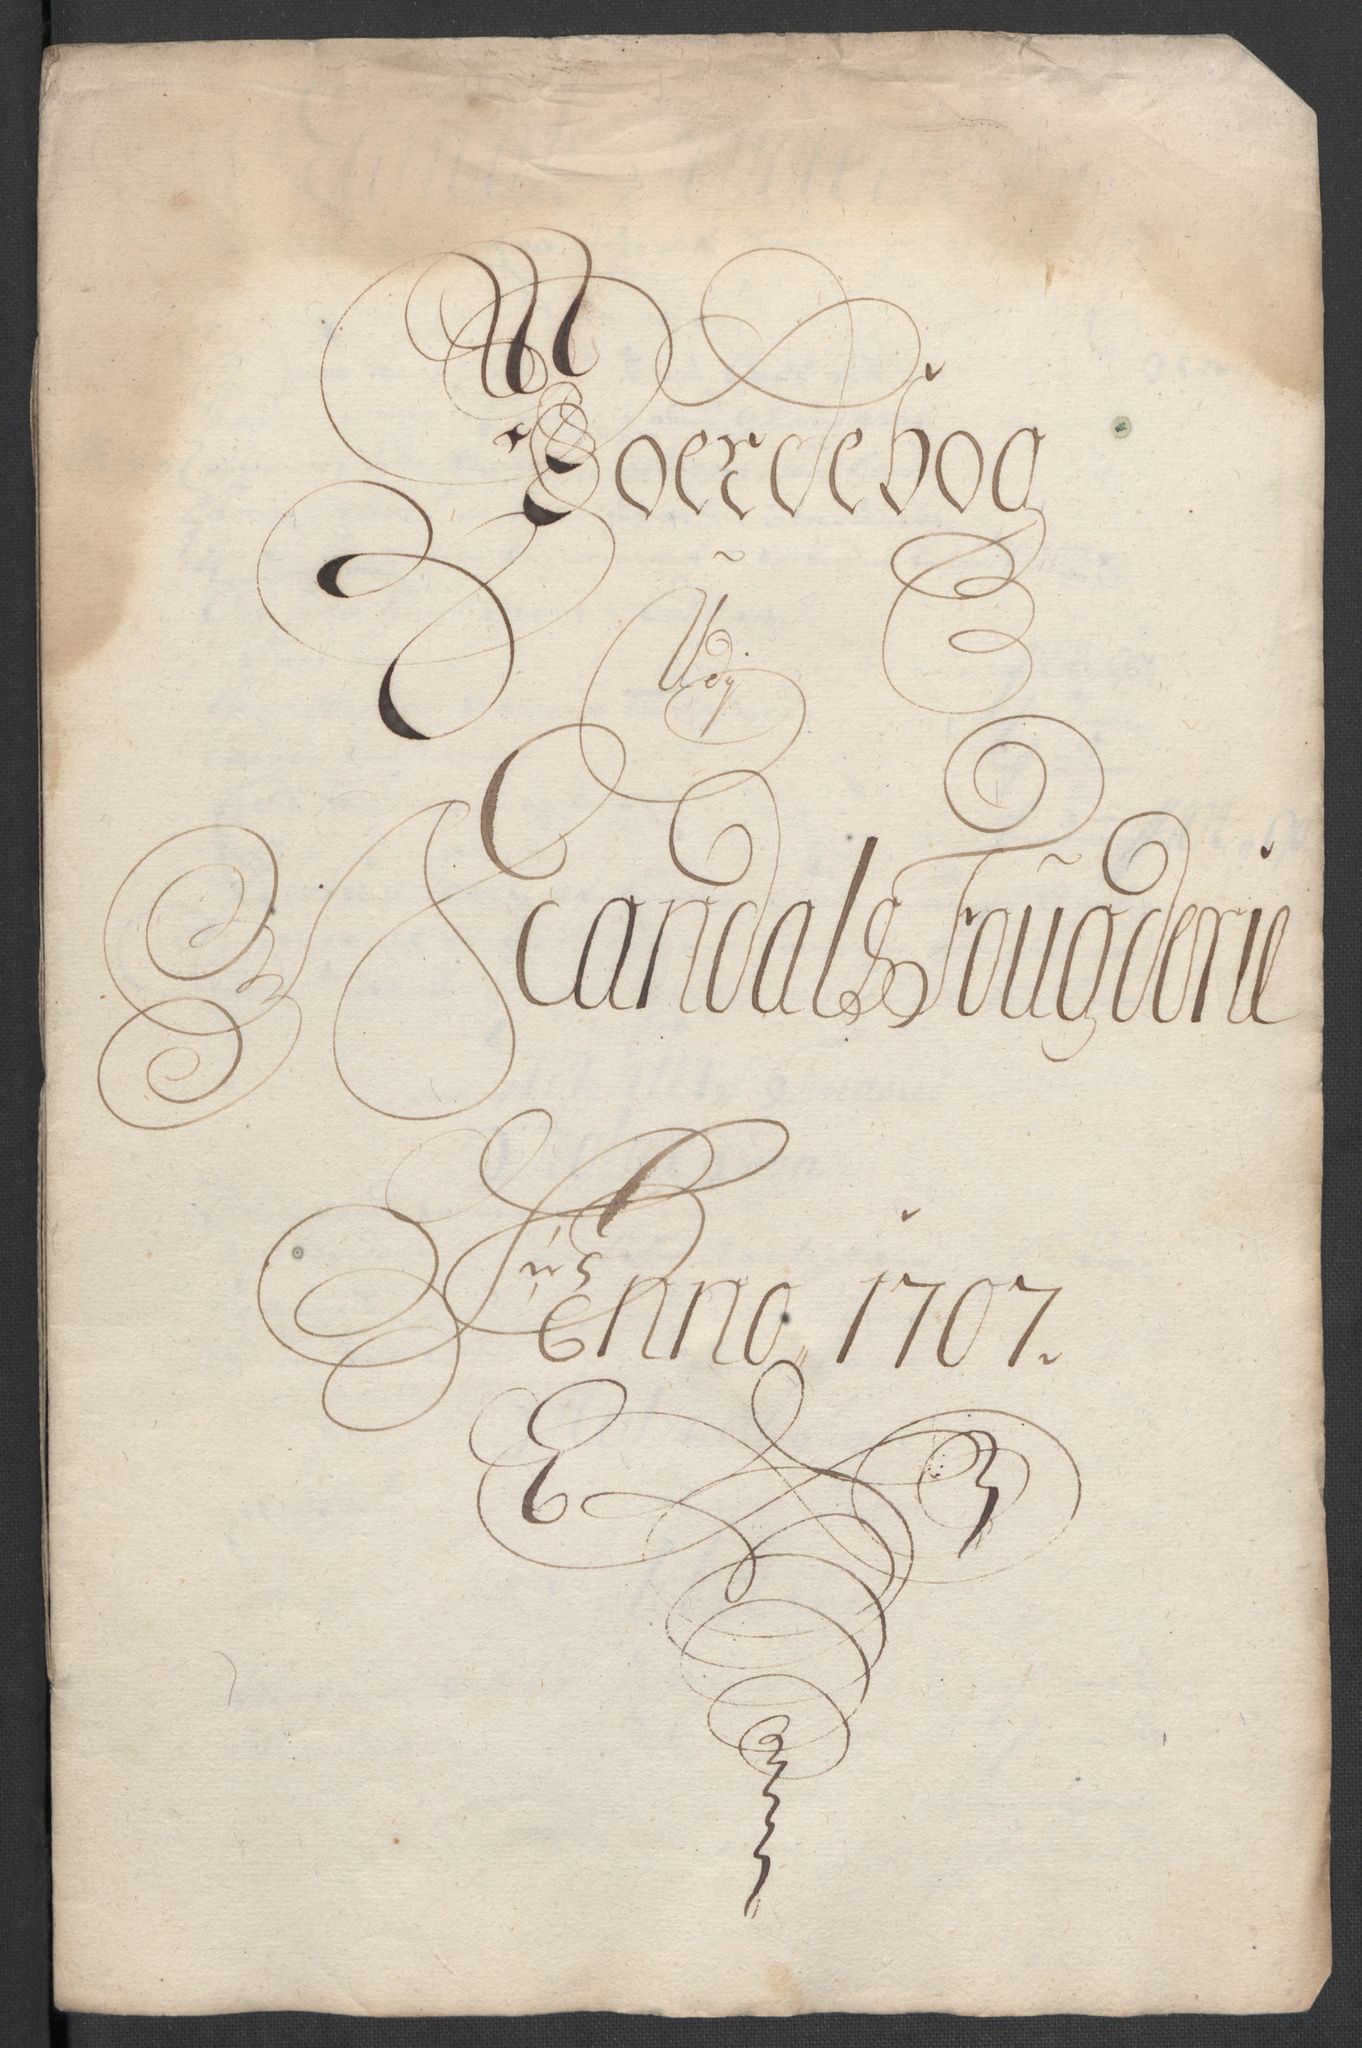 Woerdebog
Udj
Scandals Foũgderie
Pro
Anno, 1707.